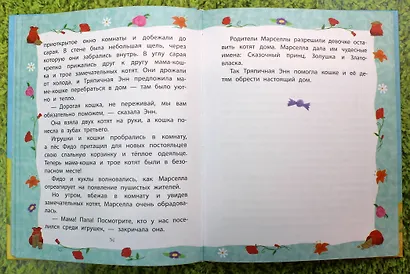 приоткрытое окно комнаты и добежали до
сарая. В стене была небольшая щель, через
которую они забрались внутрь. В углу сарая
крепко прижались друг к другу мама-кош-
ка и трое замечательных котят. Они дрожали
от холода, и Тряпичная Энн предложила ма-
ме-кошке перебраться в дом — там было уют-
но и тепло.
— Дорогая кошка, не переживай, мы вам
обязательно поможем, — сказала Энн.
Она взяла двух котят на руки, а кошка по-
несла в зубах третьего.
Игрушки и кошки пробрались в комнату,
а пёс Фидо притащил для новых постояльцев
свою спальную корзинку и тёплое одеяльце.
Теперь мама-кошка и трое котят были в безо-
пасном месте!
Фидо и куклы волновались, как Марселла
отреагирует на появление пушистых жителей.
Но утром, вбежав в комнату и увидев
замечательных котят, Марселла очень обрадова-
лась.
— Мама! Папа! Посмотрите, кто у нас посе-
лился среди игрушек, — закричала она.
Родители Марселлы разрешили девочке оста-
вить котят дома. Марселла дала им чудесные
имена: Сказочный принц, Золушка и Злато-
власка.
Так Тряпичная Энн помогла кошке и её де-
тям обрести настоящий дом.